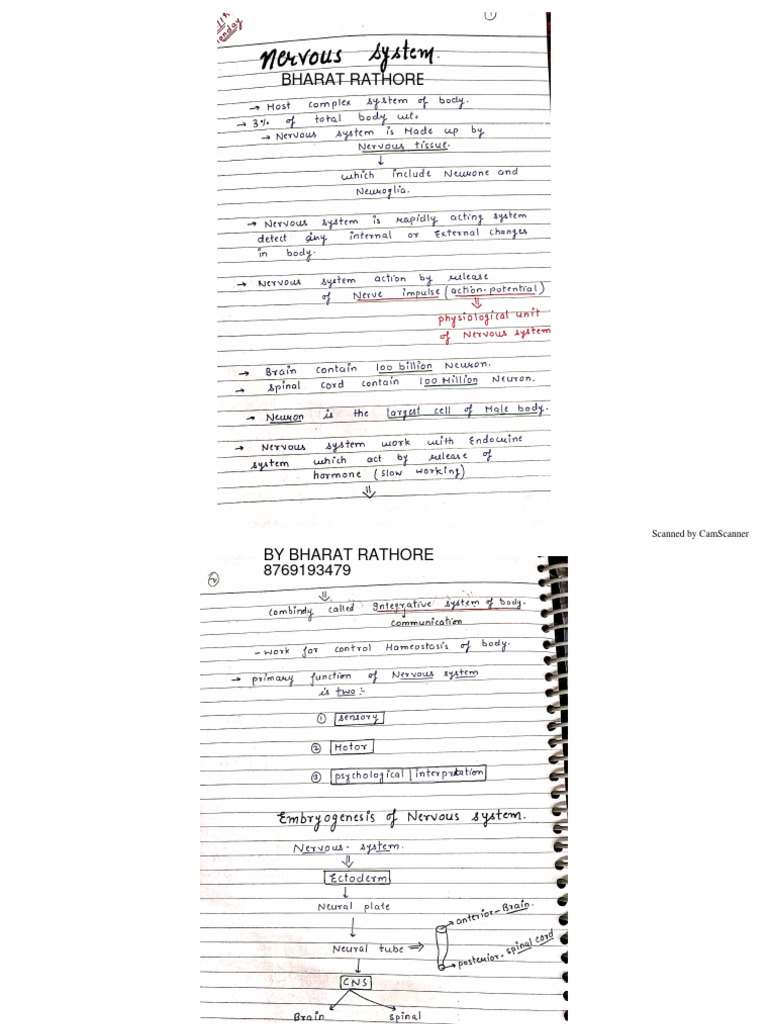 1
Monday
Nervous system.
BHARAT RATHORE
→ Most complex system of body.
→ 3% of total body wt.
→ Nervous system is Made up by
Nervous tissue.
↓
which include Neurone and
Neuroglia.
→ Nervous system is rapidly acting system
detect any internal or External changes
in body.
→ Nervous system action by release
of Nerve impulse (action-potential)
⇓
physiological unit
of Nervous system
→ Brain contain 100 billion Neuron.
→ Spinal Cord contain 100 Million Neuron.
→ Neuron is the largest cell of Male body.
→ Nervous system work with Endocrine
system which act by release of
hormone (slow working)
⇓
Scanned by CamScanner
BY BHARAT RATHORE
8769193479
2
⇓
Combindy called Integrative system of body.
Communication
- work for control Homeostasis of body.
→ primary function of Nervous system
is two:-
① Sensory
② Motor
③ psychological interpretation
Embryogenesis of Nervous system.
Nervous- system.
⇓
Ectoderm
↓
Neural plate
↓
Neural tube ⇒
→ anterior- Brain.
→ posterior- spinal cord
↓
CNS
Brain spinal